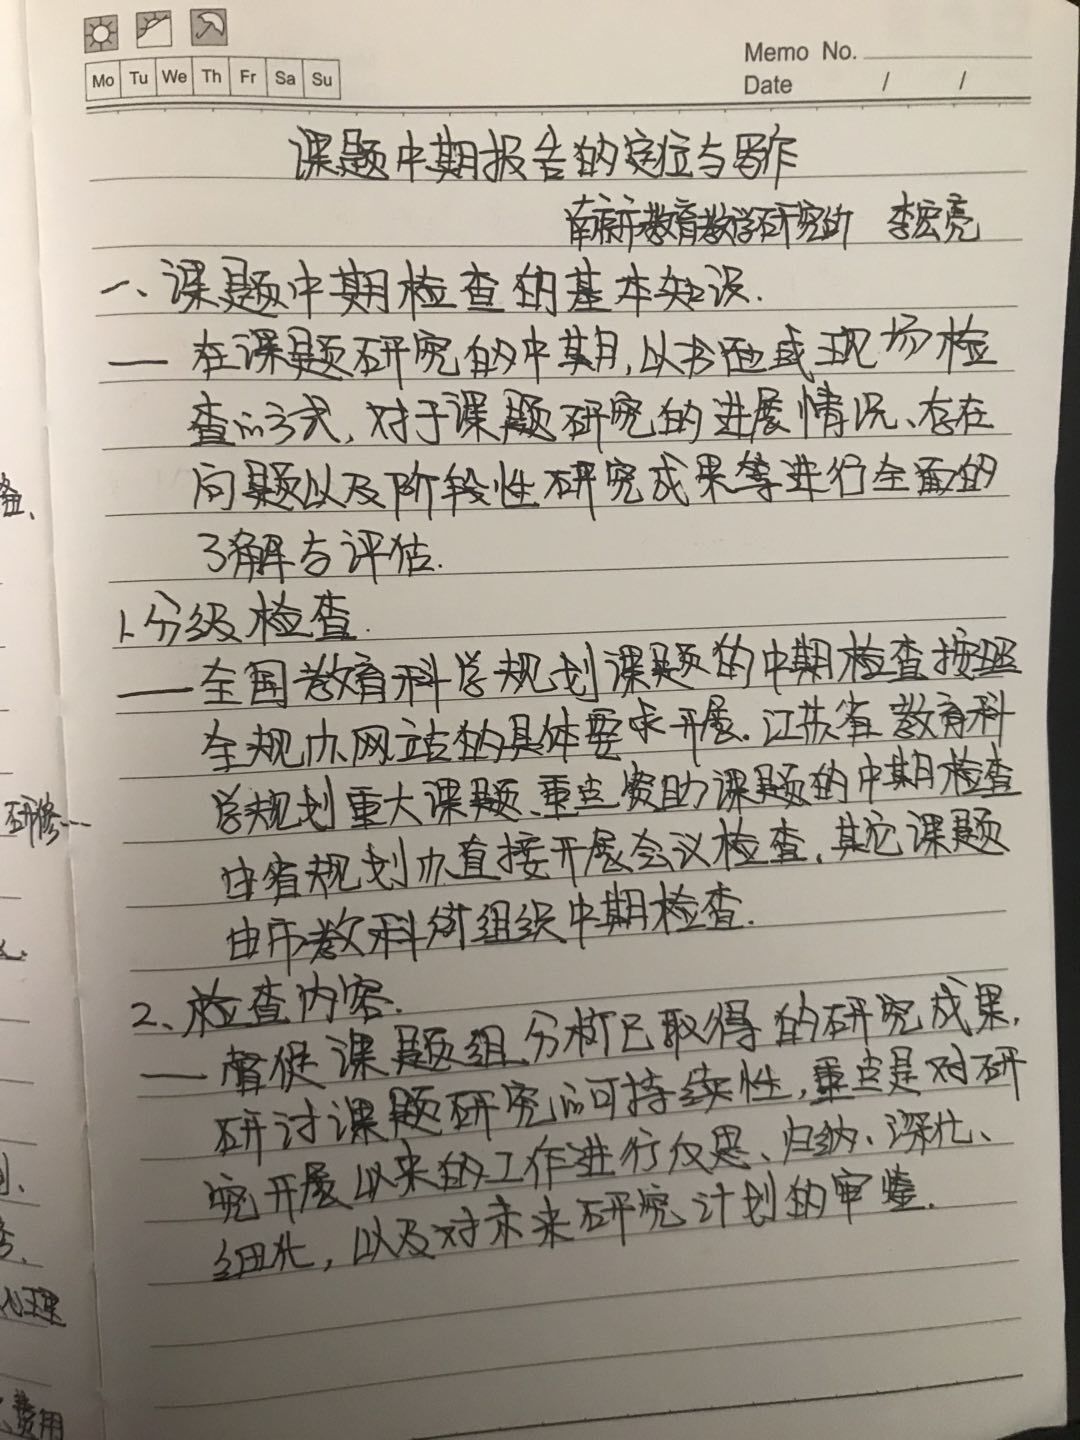 Mo Tu We Th Fr Sa Su
Memo No.
Date / /
课题中期报告的定位与写作
教育教学研究 李宏亮
一、课题中期检查的基本知识.
— 在课题研究的中期,以书面或现场检
查的方式,对于课题研究的进展情况、存在
问题以及阶段性研究成果等进行全面的
了解与评估.
1、分级检查.
— 全国教育科学规划课题的中期检查按照
全规办网站的具体要求开展.江苏省教育科
学规划重大课题、重点资助课题的中期检查
由省规划办直接开展会议检查,其它课题
由市教科所组织中期检查.
2、检查内容.
— 督促课题组分析已取得的研究成果,
研讨课题研究的可持续性,重点是对研
究开展以来的工作进行反思、归纳、深化、
细化,以及对未来研究计划的审鉴.
研修---
心理
费用